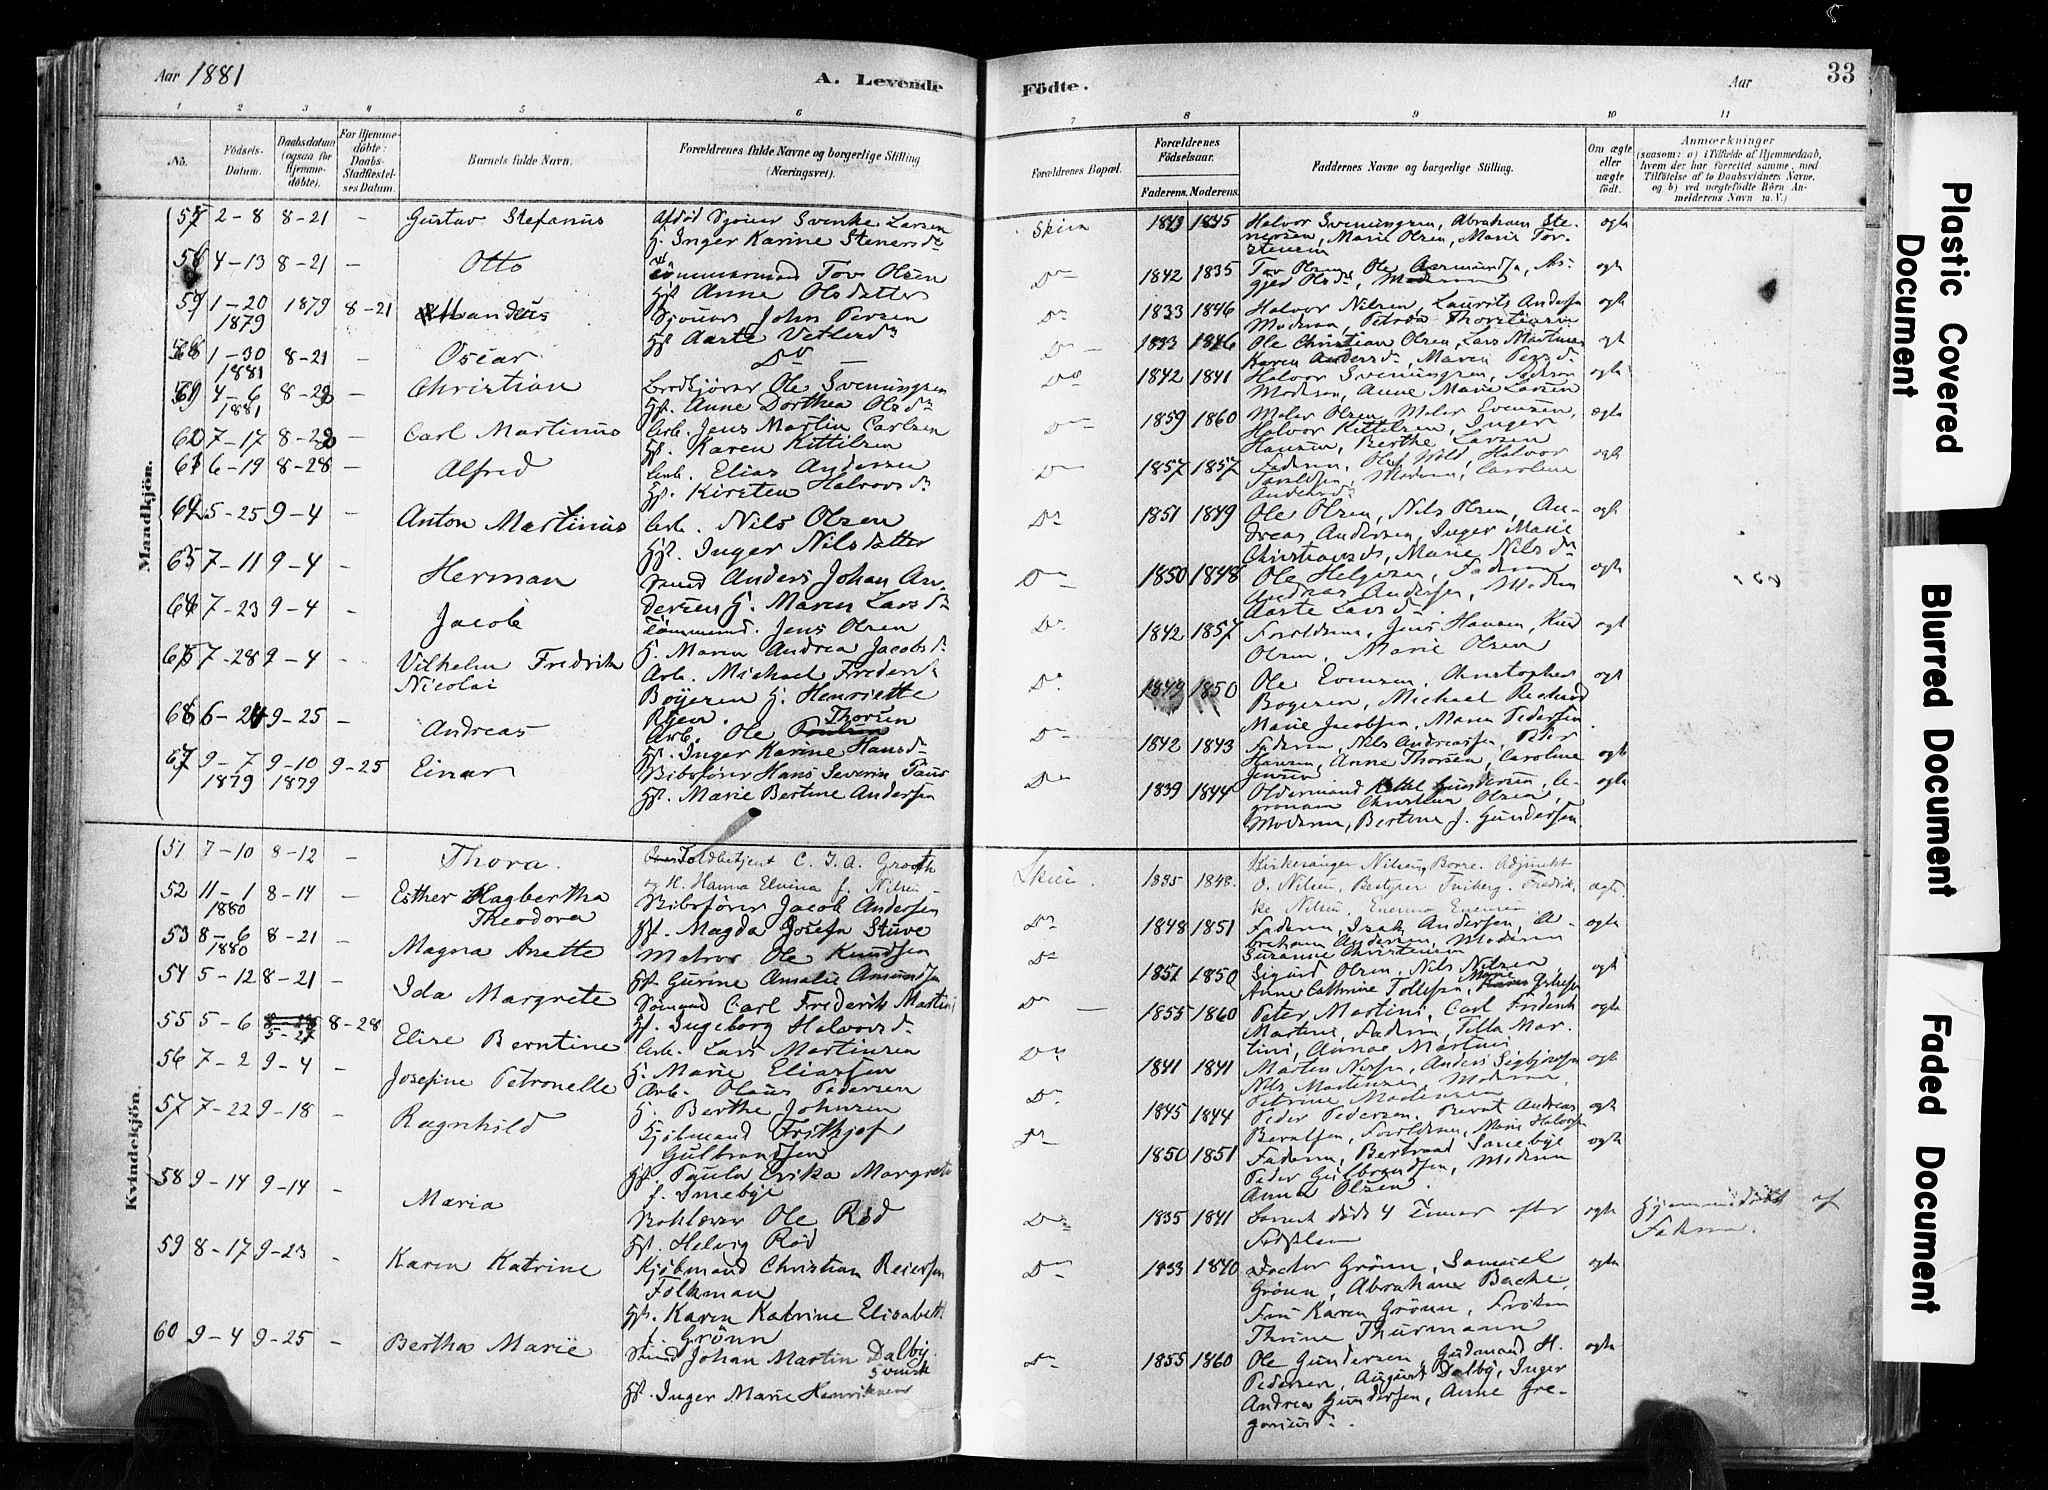 Aar 1881
A. Levende
Födte.
Aar
33
1 2 3 4 5 6 7 8 9 10 11
No.
Födsels-Datum.
Daabsdatum (ogsaa for Hjemmedöbte).
For Hjemmedöbte: Daabs-Stadfæstelses Datum.
Barnets fulde Navn.
Forældrenes fulde Navne og borgerlige Stilling (Næringsvei).
Forældrenes Bopæl.
Forældrenes Födselsaar.
Faderens. Moderens.
Faddernes Navne og borgerlige Stilling.
Om ægte eller uægte födt.
Anmærkninger
(saasom: a) i Tilfælde af Hjemmedaab, hvem der har forrettet samme, med Tilföielse af to Daabsvidners Navne, og b) ved uægtefödte Börn Anmelderens Navn m. V.)
Mandkjön.
57 2-8 8-21 - Gustav Stefanus
Afdöd Sjouer Svenke Larsen
H. Inger Karine Stenersdr
Skien 1843 1845
Halvor Svenningsen, Abraham Stenersen, Marie Olsen, Marie Torstensen
ægte
58 4-13 8-21 - Otto
Tömmermand Tov Olsen
Hst. Anne Olsdatter
Do 1842 1835
ægte
59 1-20 1879 1879 8-21
Sjouer John Persen
Hst. Aarte Vetlesdr
Do 1833 1846
Halvor Nilsen, Laurits Andersen
ægte
1-30 1881 8-21 - Oscar
Do
Do 1833 1846
Ole Christian Olsen, Lars Martinsen
Karen Andersdr, Maren Persdr
ægte
4-6 1881 8-29 - Christian
Brödkjörer Ole Svenningsen
Hst. Anne Dorthea Olsdr
Do 1842 1841
Halvor Svenningsen, Faderen
Moderen, Anne Marie Larsen
ægte
62 7-17 8-28 - Carl Martinus
Arb. Jens Martin Carlsen
Hst. Karen Kittilsen
Do 1859 1860
Maler Olsen, Maler Evensen,
Halvor Kittelsen, Inger
Hansen, Berthe Larsen
ægte
6-19 8-28 - Alfred
Arb. Elias Andersen
Hst. Kirsten Halvorsdr
Do 1857 1857
Faderen, Olef Wold, Halvor
Moderen, Caroline
Andersdr
ægte
64 5-25 9-4 - Anton Martinus
Arb. Nils Olsen
Hst. Inger Nilsdatter
Do 1851 1849
Ole Olsen, Nils Olsen, Andreas Andersen, Inger Marie
Christiansdr, Marie Nilsdr
ægte
63 7-11 9-4 - Herman
Smed Anders Johan Andersen H. Maren Larsdr
Do 1850 1848
Ole Helgesen, Faderen
Andreas Andersen, Moderen
Aarte Larsdr
ægte
64 7-23 9-4 - Jacob
Tömmermd. Jens Olsen
H. Maren Andrea Jacobsdr
Do 1842 1857
Forældrene, Jens Hansen, Knud
Olsen, Marie Olsen
ægte
65 7-28 9-4 - Vilhelm Fredrik
Nicolai
Arb. Michael Frederik
Boyesen H. Henriette
Do 1849 1850
Ole Evensen, Christopher
Bogesen, Michael
Marie Jacobsen, Maren Pedersen
ægte
66 6-24 9-25 - Andreas
Arb. Ole Thorsen
Hst. Inger Karine Hansdr
Do 1842 1843
Faderen, Nils Andreassen, Peer
Hansen, Anne Thorsen, Caroline
Jensen
ægte
67 9-7 1879 9-10 1879 9-25 Einar
Bibsförer Hans Severin Paus
Hst. Marie Bertine Andersen
Do 1839 1844
Oldermand Kittel Gundersen,
Christian Olsen,
Moderen, Bertine J. Gundersen
ægte
Kvindekjön.
51 7-10 8-12 - Thora.
Toldbetjent C. J. A. Grooth
og H. Hanna Elvina f. Nilsen
Skien. 1835 1848.
Kirkesanger Nilsen, Borre. Adjunkt
O. Nilsen, Bestyrer Fredrikke Nilsen,
ægte
52 11-1 1880 8-14 - Esther Hagbertha
Theodora
Bibsförer Jacob Andersen
Hst. Magda Josefa Stuve
Do 1848 1851
Faderen, Isak Andersen, Abraham Andersen, Moderen
Susanne Christensen
ægte
53 8-6 1880 8-21 - Magna Anette
Matros Ole Knudsen
Hst. Gurine Amalie Amundsen
Do 1851 1850
Sigurd Olsen, Nils Nilsen
Anne Cathrine Tollefsen, Marie
ægte
54 5-12 8-21 - Ida Margrete
Sömand Carl Frederik Martini
Hst. Ingeborg Halvorsdr
Do 1855 1860
Peter Martini, Carl Frederik
Martini, Faderen, Tilla Martini, Annae Martini
ægte
55 5-6 5-27 8-28 Elise Berntine
Arb. Lars Martinsen
H. Marie Eliassen
Do 1841 1841
Anders Sigbjörnsen
Nils Martensen, Moderen,
Petrine Martensen
ægte
56 7-2 9-4 - Josefine Petronelle
Arb. Olaus Pedersen
H. Berthe Johnsen
Do 1845 1844
Peder Pedersen, Bernt Andreas
Berntsen, Forældrene, Marie Halvorsen
ægte
57 7-22 9-18 - Ragnhild
Kjöbmand Frithjof
Gulbrandsen
Hst. Paula Erika Margrete
f. Smebye
Do 1850 1851
Faderen, Bertrand Smebye
Peder Gulbrandsen, Moderen
Anna Olsen.
ægte
58 9-14 9-14 - Maria
Ole Röd
Hst. Helvig Röd
Do 1835 1841
Barnet döde 4 Timer efter
Födselen
ægte
Hjemmedöbt af
Faderen.
59 8-17 9-23 - Karen Katrine
Kjöbmand Christian Reiersen
Folkman
Hst. Karen Katrine Elisabeth
f. Grönn
Do 1833 1840
Doctor Grönn, Samuel
Grönn, Abraham Backe,
Fru Karen Grönn, Fröken
Thrine Thurmann
ægte
60 9-4 9-25 - Bertha Marie
Smed Johan Martin Dalby.
Svensk
Hst. Inger Marie Henriksen
Do 1855 1860
Ole Gundersen, Gudmand H.
Pedersen, August Dalby, Inger
Andrea Gundersen, Anne Gregoriusdr.
ægte
Plastic Covered Document
Blurred Document
Faded Document